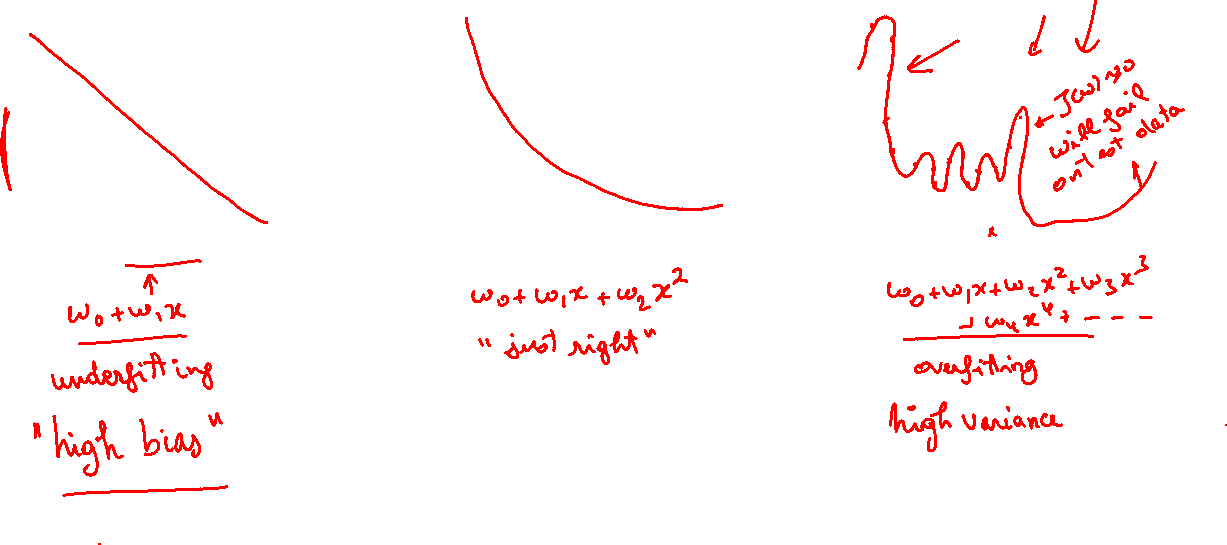 w₀ + w₁x
underfitting
"high bias"
w₀ + w₁x + w₂x²
"just right"
J(w) ≈ 0
will fail
on test data
w₀ + w₁x + w₂x² + w₃x³
+ w₄x⁴ + - - - -
overfitting
high variance